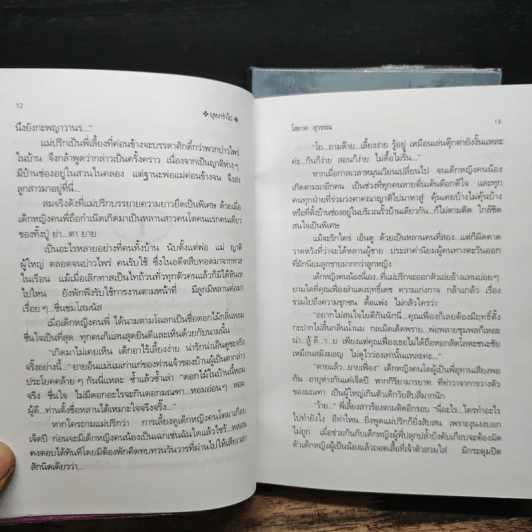 12
❖ บุหงารำไป ❖
นึงยังกะพญาวานร..."
แม่ปริกเป็นพี่เลี้ยงที่ค่อนข้างจะบรรดาศักดิ์กว่าพวกบ่าวไพร่
ในบ้าน จึงกล้าพูดว่ากล่าวเป็นครั้งคราว เนื่องจากเป็นญาติห่างๆ
มีบ้านช่องอยู่ในสวนในคลอง แต่ฐานะพ่อแม่ค่อนข้างจน จึงส่ง
ลูกสาวมาอยู่ที่นี่...
สมจริงดังที่แม่ปริกบรรยายความยาวยืดเป็นพิเศษ ด้วยเมื่อ
เด็กหญิงคนพี่ถือกำเนิดเกิดมาเป็นหลานสาวคนโตคนแรกคนเดียว
ของทั้งปู่ ย่า...ตา ยาย
เป็นอะไรหลายอย่างที่คนทั้งบ้าน นับตั้งแต่พ่อ แม่ ญาติ
ผู้ใหญ่ ตลอดจนบ่าวไพร่ คนรับใช้ ซึ่งในอดีตสืบทอดมาจากทาส
ในเรือน แม้เมื่อเลิกทาสเป็นไทถ้วนทั่วทุกตัวคนแล้วก็มิได้หันเห
ไปไหน ยังพักพึงรับใช้การงานตามหน้าที่ มีลูกมีหลานต่อมา
เรื่อยๆ...ชื่นชมโสมนัส
เมื่อเด็กหญิงคนพี่ ได้นามตามโฉลกเป็นชื่อดอกไม้กลิ่นหอม
ชื่นใจเป็นที่สุด...ทุกคนก็แสนสุดยินดีและเห็นด้วยกับนามนั้น
"เกิดมาไม่เคยเห็น เด็กอาไร้เลี้ยงง่าย น่ารักน่าเอ็นดูซะจริง
จริ๊งอย่างนี้..." ยายอ้นแม่นมเก่าแก่ของท่านเจ้าของบ้านผู้เป็นตากล่าว
ประโยคคล้ายๆ กันนี่แหละ ซ้ำแล้วซ้ำเล่า "ดอกไม้ในบ้านนี้หอม
จริง ชื่นใจ ไม่มีดอกอะไรจะเกินดอกมณฑา...หอมอ่อนๆ หอม
ผู้ดี...ท่านตั้งชื่อหลานได้เหมาะใจจริงจริ๊ง..."
หากใครถามแม่ปริกว่า การเลี้ยงดูเด็กหญิงคนโตมาเกือบ
เจ็ดปี ก่อนจะมีเด็กหญิงคนน้องเป็นฉกาเช่นนันใดแล้วไซร้...หล่อน
คงตอบได้ทันทีโดยมิต้องพักคิดทบทวนวันวารที่ผ่านไปให้เสียเวลา
สักนิดเดียวว่า...
โสภาค สุวรรณ
13
"โถ...ถามด๊าย...เลี้ยงง่าย รู้อยู่ เหมือนเล่นตุ๊กตายังงั้นแหละ
ค่ะ..กินก็ง่าย สอนก็ง่าย ไม่ดื้อไม่รั้น..."
หากเมื่อกาลเวลาหมุนเวียนเปลี่ยนไป จนเด็กหญิงคนน้อง
เกิดตามมาอีกคน เป็นช่วงที่ทุกคนหายตื่นเต้นดีอกดีใจ และทุก
คนทุกฝ่ายที่ร่วมวงศาคณาญาติไปมาหาสู่ คุ้นเคยบ้างไม่คุ้นบ้าง
หรือที่ตั้งบ้านช่องอยู่ในบริเวณรั้วบ้านเดียวกัน...ก็ไม่ตามติด ใกล้ชิด
สนใจเป็นพิเศษ
แม้จะรักใคร่ เอ็นดู ด้วยเป็นหลานคนที่สอง...แต่ก็มีผิดคาด
วาดหวังที่ว่าจะได้หลานผู้ชาย ประสาค่านิยมผู้คนทางตะวันออก
ที่มักนิยมลูกชายมากกว่าลูกหญิง
เด็กหญิงคนน้องนี่เอง...ที่แม่ปริกจะออกตัวเอ่ยอ้างแทนบ่อยๆ
ยามใดที่คุณเฟื่องสำแดงฤทธิ์เดช ความเก่งกาจ กล้าแกล้ว เรื่อง
รวมไปถึงความซุกซน ดื้อแพ่ง ไม่กลัวใครว่า
"อยากไม่สนใจไยดีกันนักนี่...คุณเฟื่องก็เลยต้องมีฤทธิ์ตั้ง
กะปาไปสิ้นกลิ่นน้ำนม กลเม็ดเด็ดพราย...พ่อพลายชุมพลก็เหอะ
น่า...สู้ ด๊...าย เพียงแต่คุณเฟื่องเธอไม่ได้ถือหอกสัตโลหะชนะชัย
เหมือนสมิงมอญ ไม่ดูไว้วองเท่านั้นแหละค่ะ..."
"ตายแล้ว...ยายเฟื่อง" เด็กหญิงคนโตผู้เป็นพี่อุทานเสียงพอ
กัน อายุห่างกันแค่เจ็ดปี หากกิริยามารยาท ทีท่าวาจาการวางตัว
ของมณฑา เป็นผู้ใหญ่เกินตัวเด็กวัยสิบสี่มากนัก
"ว้าย..." พี่เลี้ยงสาวร้องตามติดอีกรอบ "นี่อะไร...ใครทำอะไร
ไปทำยังไง อีท่าไหน...ยิ่งพูดแม่ปริกก็ยิ่งสับสน เพราะงุนงงบอก
ไม่ถูก เมื่อช่วยกันกับเด็กหญิงผู้พี่ปลุกปล้ำบังคับเกือบจะต้องมัด
ตัวเด็กหญิงผู้เป็นน้องแล้วถอดเสื้อที่เจ้าตัวสวมใส่ มีกระดุมปิด